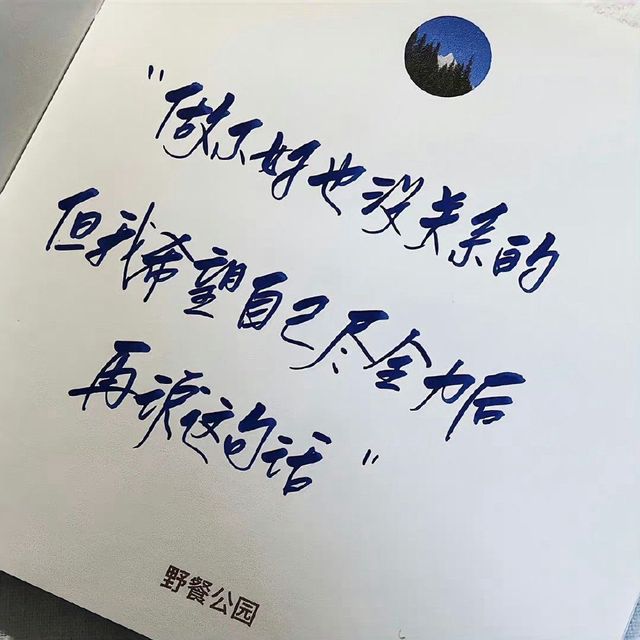 "做不好也没关系的
但我希望自己尽全力后
再说这句话"
野餐公园